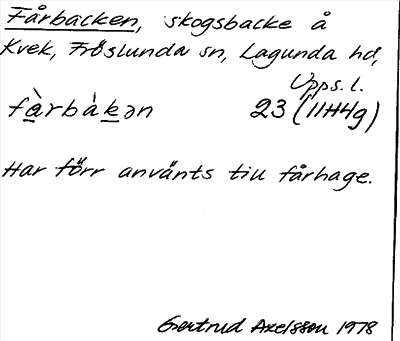 Fårbacken, skogsbacke å
Kvek, Fröslunda sn, Lagunda hd,
Upps. l.
fàrbàkən 23 (11H4g)
Har förr använts till fårhage.
Gertrud Axelsson 1978